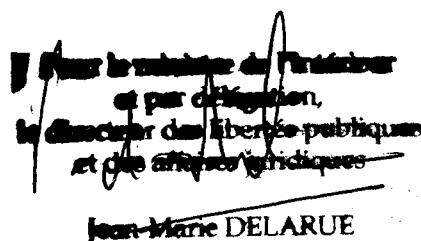 Pour le ministre de l'intérieur
et par délégation,
le directeur des libertés publiques
et des affaires juridiques
Jean-Marie DELARUE